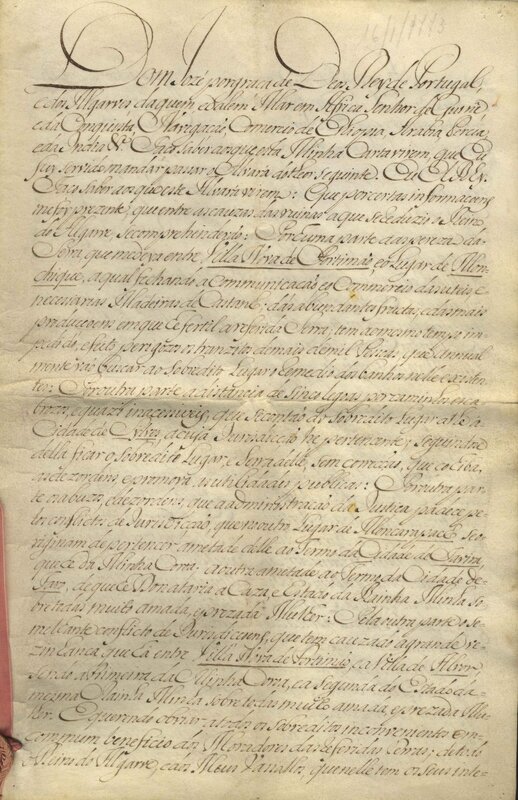 16/1/1773
Dom Jozé por graça de Deos Rey de Portugal,
e dos Algarves, daquem, edalem Mar em Africa Senhor de Guiné,
e da Conquista, Navegação, Comercio de Ethiopia, Arabia, Percia,
e da India &c. Faço saber aos que esta Minha Carta virem, que Eu
fui servido mandar passar o Alvará do theor seguinte: Eu ElRey
Faço saber aos que este Alvará virem: Que por certas informaçoens
me foy prezente, que entre as cauzas das ruinas a que se reduzio o Reino
do Algarve, se comprehenderão: Por huma parte a aspereza da
Serra, que medeya entre Villa Nova de Portimão, e o Lugar de Mon-
chique, a qual fechando a Communicação, e o Commercio das uteis, e
necessarias Madeiras de Castanho; das abundantes frutas; e das mais
producçoens em que he fertil a referida Serra; tem ao mesmo tempo im-
pedido, e feito perigozo o tranzito de mais de mil Pessoas, que annual
mente vão buscar ao Sobredito Lugar o remedio dos banhos nelle existen-
tes: Por outra parte a distancia de sinco legoas por caminhos esca-
brozos, e quazi inacessiveis, que se contão do Sobredito Lugar athé a
Cidade de Sylves, a cuja Jurisdicção he pertencente; Seguindose
della ficar o sobredito Lugar, e Serra delle, sem correição, que cohiba
as dezordens, e promova as utilidades publicas: Por outra par-
te os abuzos, e dezordens, que a administração da Justiça padece pe-
los conflictos de Jurisdicção, que no outro Lugar de Alcantarilha se
originam de pertencer ametade delle ao Termo da Cidade de
que he da Minha Coroa; e a outra ametade ao Termo da Cidade de
de que he Donataria a Caza, e Estado da Rainha Minha So-
bre todas muito amada, e prezada Mulher: E pela outra parte o se-
melhante conflicto de Jurisdiçoens, que tem cauzado a grande vi-
zinhança, que há entre Villa Nova de Portimão, e a Villa de Alvor,
sendo a primeira da Minha Coroa, e a Segunda do Estado da
mesma Rainha Minha sobre todas muito amada, e prezada Mu-
lher. E querendo obviar a todos os sobreditos inconvenientes em
commum beneficio dos Moradores das referidas Terras; de todo
o Reino do Algarve, e dos Meus Vassallos, que nelle tem os seus inte-